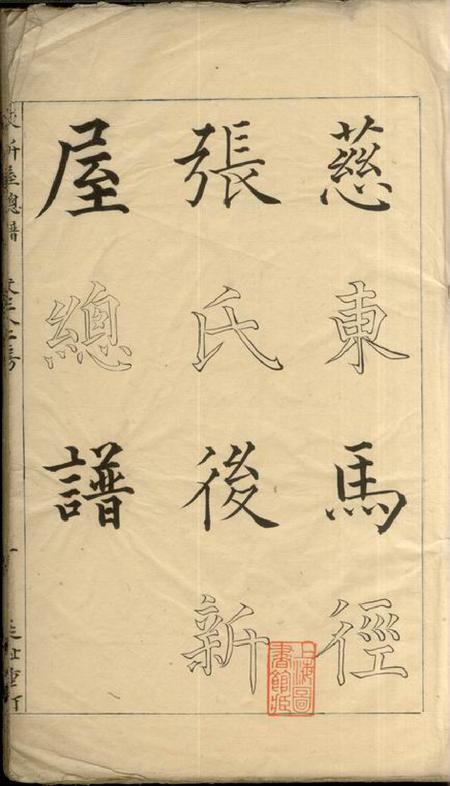 慈東馬徑
張氏後新
屋總譜
上海圖書館藏